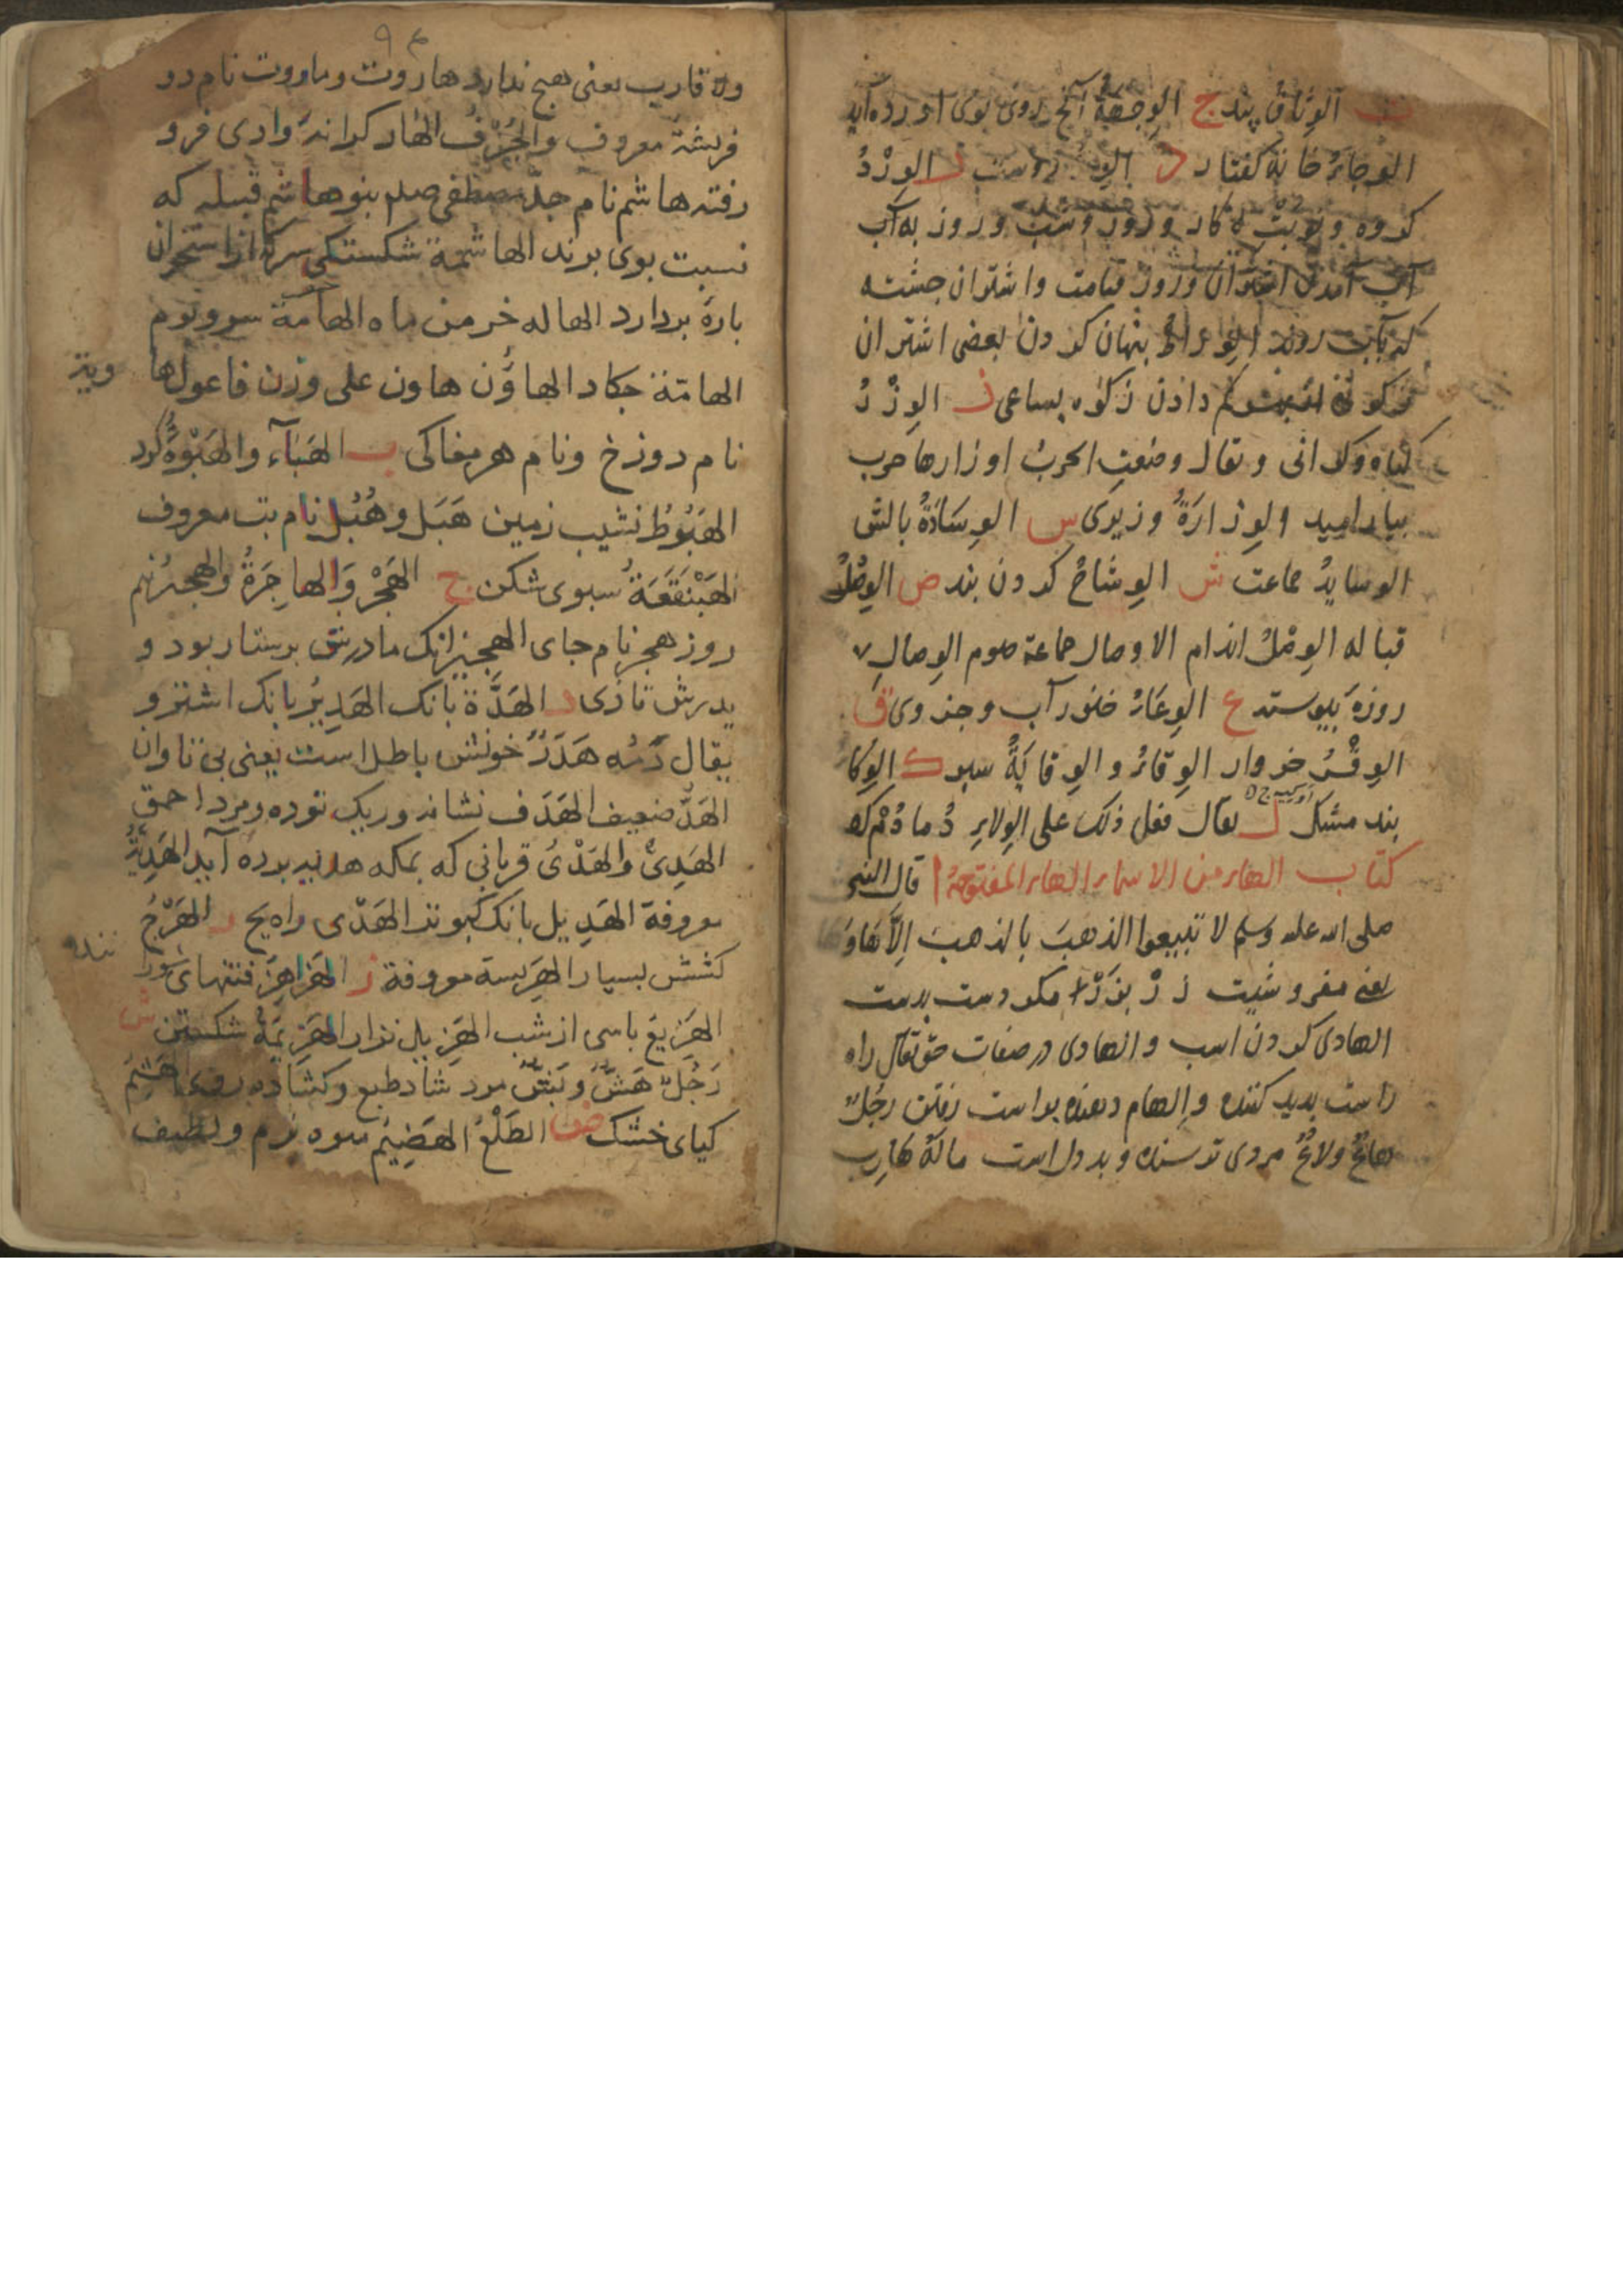 ث الوِثاقُ بند ج الوِجهَةُ آنچ روی بوی اورده آید
الوجارُ خانهٔ کفتار د
الوِرْدُ
کروه و نوبت
و روز وشب و روز به آب
آب آمدن اشتران و روز قیامت و اشتران جشته
کی بآب روند الوِراطُ بنهان کردن بعضی اشتران
کم دادن زکوه بساعی ز الوِزْرُ
کناه وکرانی و یقال وضعتِ الحربُ اوزارها حرب
بیارامید والوِزارَةُ وزیری س الوِسَادَةُ بالش
الوسایدُ جماعت ش الوِشاحُ کردن بند ص الوِصْرُ
قباله الوِصْلُ اندام الاوصال جماعة صوم الوِصالِ
روزهٔ بیوسته ع الوِعَاءُ خنور آب وجزوی ق
الوِقْرُ خروار الوِقاءُ والوِقایَةُ سبر ک الوِکاءُ
بند مشک ل یقال فعل ذلک علی الوِلاءِ
کتاب الهاء من الاسماء الهاء المفتوحة ا قال النبی
صلی الله علیه وسلم لا تبیعوا الذهبَ بالذهبَ اِلاَّ هَاوَهَا
یعنی مفروشیت زرْ بزرْ الا مکر دست بدست
الهادی کردن اسب والهادی در صفات حق تعالی راه
راست بدید کننده و الهام دهنده براست رفتن رجُلٌ
هاعٌ ولاعٌ مردی ترسنده وبددل است مالَهُ هارِب
۹۴
ولا قارب یعنی هیچ ندارد هاروت و ماروت نام دو
فرشتهٔ معروف والجُرُفُ الهار کرانهٔ وادی فرو
رفته هاشم نام جدّ مصطفی صلم بنوهاشم قبیله که
نسبت بوی برند الهاشمة شکستکی سرکه از استخوان
بارهٔ بردارد الهاله خرمن ماه الهامّة سر وبوم
الهامّة جکاد الهاوُن هاون علی وزن فاعول ها
ویة
نام دوزخ ونام هر مغاکی ب الهَبَاء والهَبْوَةُ کرد
الهَبُوطُ نشیب زمین هَبَل وهُبَل نام بت معروف
الهَبَنْقَعَةُ سبوی شکن ج الهَجْرُ وَالهاجِرَةُ والهجیرُ نیم
روز هجر نام جای الهجین انک مادرش برستار بود و
بدرش تازی د الهَدَّة بانک الهَدِیرُ بانک اشتر و
یقال دَمُه هَدَرٌ خونش باطل است یعنی بی تاوان
الهَدُّ ضعیف الهَدَف نشانه وریک توده ومرد احمق
الهَدِیُّ والهَدْیُ قربانی که بمکه هدیه برده آید الهَدِیَّةُ
معروفة الهَدِیل بانک کبوتر الهَدْی راه ر الهَرْجُ
کشتن بسیار الهَرِیسة معروفة ز الهَزاهِزُ فتنهای شورا
ننده
الهَزِیعُ باسی از شب الهَزِیل نزار الهَزِیمَةُ شکستن ش
رَجُلٌ هَشٌّ وبَشٌّ مرد شاد طبع وکشاده روی الهَشِیمُ
کیای خشک ض الطَلْعُ الهَضِیْمُ میوه نرم ولطیف